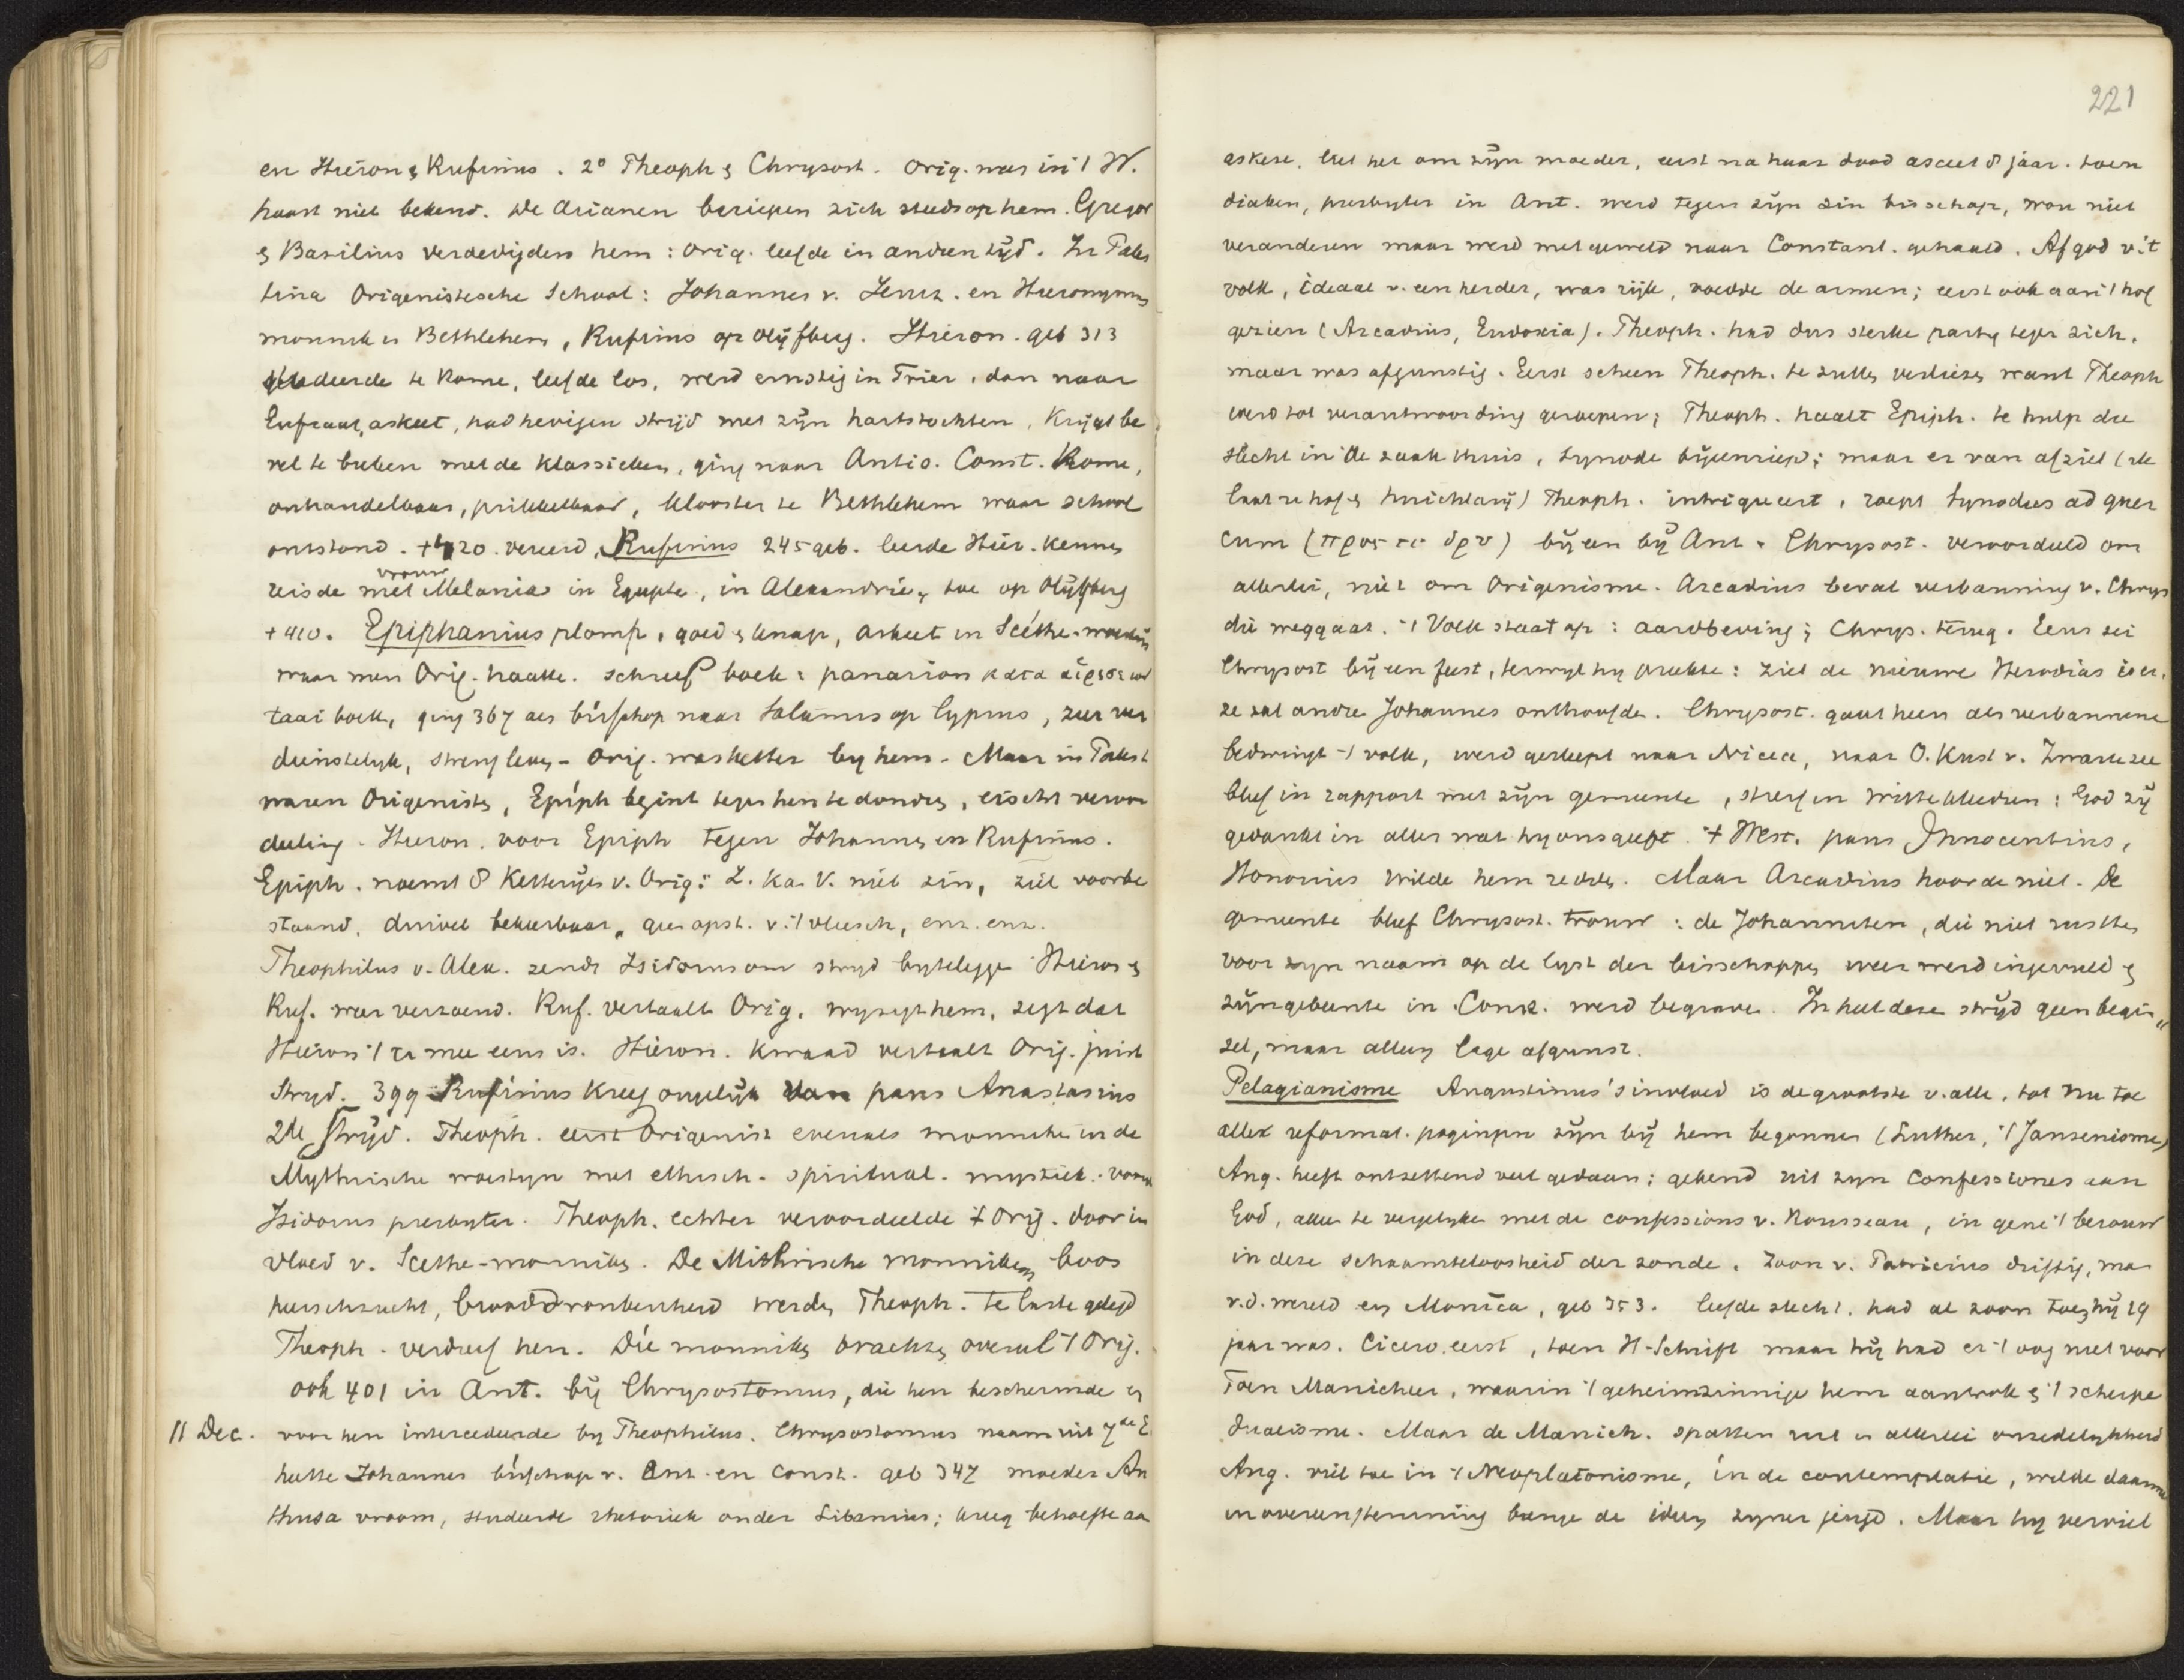 en Hieron & Rufinus. 2° Theoph & Chrysost. Orig. was in 't W.
haast niet bekend. De Arianen beriepen zich steeds op hem. Gregor
& Basilius verdedigden hem: Orig. leefde in andren tijd. In Pales
tina Origenistische School: Johannes v. Jeruz. en Hieronymus
monnik in Bethlehem, Rufinus op Olijfberg. Hieron. geb 313
studeerde te Rome, leefde los, werd ernstig in Trier, dan naar
Eufraat, askeet, had hevigen strijd met zijn hartstochten. Krijgt be
vel te breken met de klassieken, ging naar Antio. Const. Rome,
onhandelbaar, prikkelbaar, klooster te Bethlehem waar school
ontstond. † 420. vereerd, Rufinus 245 geb. leerde Hier. kennen
vrouw
reisde met Melania in Egypte, in Alexandrië, toe op Olijfberg
† 410. Epiphanius plomp, goed & knap, askeet in Scéthe-woestijn
waar men Orig. haatte. schreef boek: panarion κατα αἱρεσεων
taai boek, ging 367 als bisschop naar Salamis op Cyprus, zeer ver
dienstelijk, streng leven – Orig. was ketter bij hem – Maar in Palest
waren Origenisten, Epiph begint tegen hen te donderen, eischt veroor
deeling. Hieron. voor Epiph tegen Johannes en Rufinus.
Epiph. noemt 8 Ketterijen v. Orig: Z. kan V. niet zien, ziel voorbe
staand, duivel bekeerbaar, geen opst. v. 't vleesch, enz. enz.
Theophilus v. Alex. zendt Isidorus om strijd bijteleggen Hieron &
Ruf. weer verzoend. Ruf. vertaalt Orig. wijzigt hem, zegt dat
Hieron 't er mee eens is. Hieron. kwaad vertaalt Orig. juist
Strijd. 399 Rufinus kreeg ongelijk van paus Anastasius
2de Strijd. Theoph. eerst Origenist evenals monniken in de
Mythrische woestijn met ethisch-spiritual-mystiek. vooral
Isidorus presbyter. Theoph. echter veroordeelde † Orig. door in
vloed v. Scethe-monniken. De Mithrische monniken boos
heerschzucht, brooddronkenheid werden Theoph. te laste gelegd
Theoph. verdreef hen. Die monniken brachten overal 't Orig.
ook 401 in Ant. bij Chrysostomus, die hen beschermde en
11 Dec. voor hen intercedeerde bij Theophilus. Chrysostomus naam uit 7de E.
heette Johannes bisschop v. Ant. en Const. geb 347 moeder An
thusa vroom, studeerde rhetoriek onder Libanius; kreeg behoefte aan
221
askese, liet het om zijn moeder, eerst na haar dood asceet 8 jaar. toen
diaken, presbyter in Ant. werd tegen zijn zin bisschop, wou niet
veranderen maar werd met geweld naar Constant. gehaald. Afgod v. 't
volk, ideaal v. een herder, was rijk, voedde de armen; eerst ook aan 't hof
gezien (Arcadius, Eudoxia). Theoph. had dus sterke partij tegen zich.
maar was afgunstig. Eerst scheen Theoph. te zullen verliezen want Theoph
werd tot verantwoording geroepen; Theoph. haalt Epiph. te hulp die
slecht in de zaak thuis, Synode bijeenriep; maar er van afziet (ik
laat u hof & huichlarij) Theoph. intrigueert, roept Synodus ad quer
cum (προς την δρυ) bijeen bij Ant. Chrysost. veroordeeld om
allerlei, niet om Origenisme. Arcadius beval verbanning v. Chrys
die weggaat. 't Volk staat op: aardbeving; Chrys. terug. Eens zei
Chrysost bij een feest, terwijl hij preekte: ziet de nieuwe Herodias is er,
ze zal andre Johannes onthoofden. Chrysost. gaat heen als verbannene
bedwingt 't volk, werd gesleept naar Nicea, naar O. Kust v. Zwarte zee
bleef in rapport met zijn gemeente, sterf in witte kleeren: God zij
gedankt in alles wat hij ons geeft. † West. paus Innocentius,
Honorius wilde hem redden. Maar Arcadius hoorde niet. De
gemeente bleef Chrysost. trouw: de Johanniten, die niet rustten
voor zijn naam op de lijst der bisschoppen weer werd ingevuld &
zijn gebeente in Const. werd begraven. In heel deze strijd geen begin"
sel, maar alleen lage afgunst.
Pelagianisme Augustinus' invloed is de grootste v. alle, tot nu toe
alle reformat. pogingen zijn bij hem begonnen (Luther, 't Jansenisme)
Aug. heeft ontzettend veel gedaan; gekend uit zijn Confessiones aan
God, alleen te vergelijken met de confessions v. Rousseau, in gene 't berouw
in deze schaamteloosheid der zonde. Zoon v. Patricius driftig, man
v.d. wereld en Monica, geb 353. leefde slecht. had al zoon toen hij 19
jaar was. Cicero eerst, toen H-Schrift maar hij had er 't oog niet voor
Toen Manicheer, waarin 't geheimzinnige hem aantrok & 't scherpe
dualisme. Maar de Manich. spatten uit in allerlei onzedelijkheid
Aug. viel toe in 't Neoplatonisme, in de contemplatie, wilde daarmee
in overeenstemming brengen de ideen zijner jeugd. Maar hij verviel